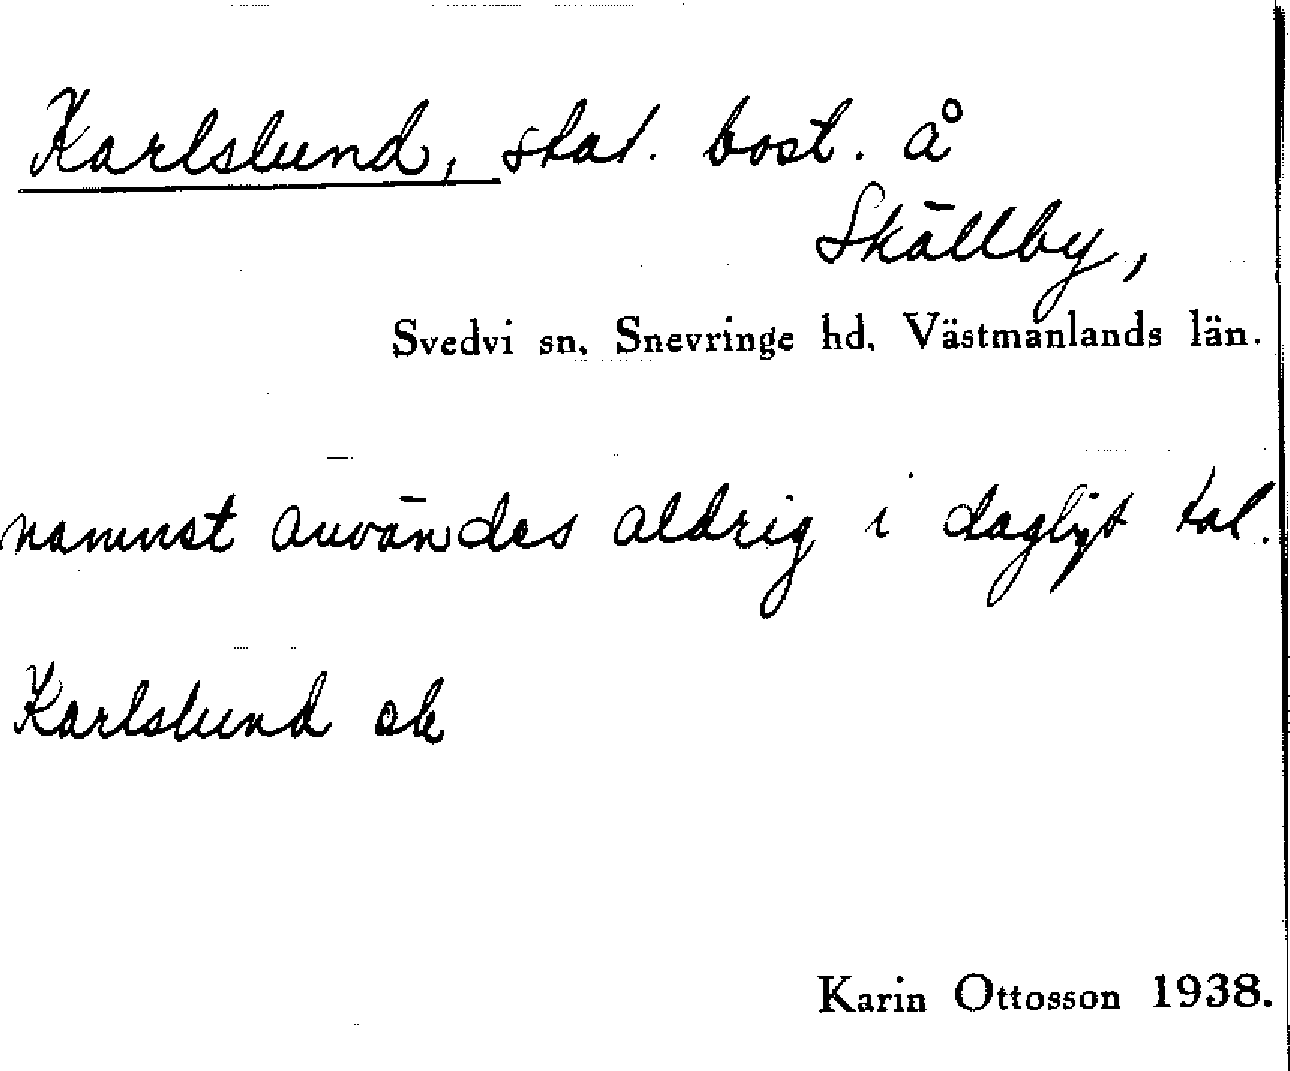 Karlslund, stat. bost. å
Skällby,
Svedvi sn, Snevringe hd, Västmanlands län.
namnet användes aldrig i dagligt tal.
Karlslund ek
Karin Ottosson 1938.